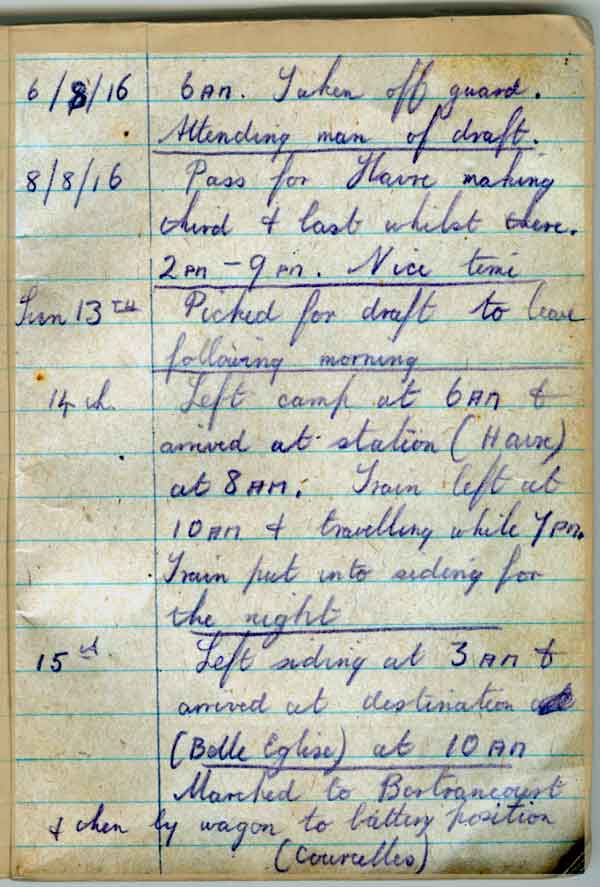 6/8/16 6 AM. Taken off guard.
Attending man of draft.
8/8/16 Pass for Havre making
third & last whilst there.
2 PM – 9 PM. Nice time
Sun 13TH Picked for draft to leave
following morning
14th. Left camp at 6 AM &
arrived at station (Havre)
at 8 AM. Train left at
10 AM & travelling while 7 PM.
Train put into siding for
the night
15th Left siding at 3 AM &
arrived at destination
(Belle Eglise) at 10 AM
Marched to Bertrancourt
& then by wagon to battery position
(Courcelles)